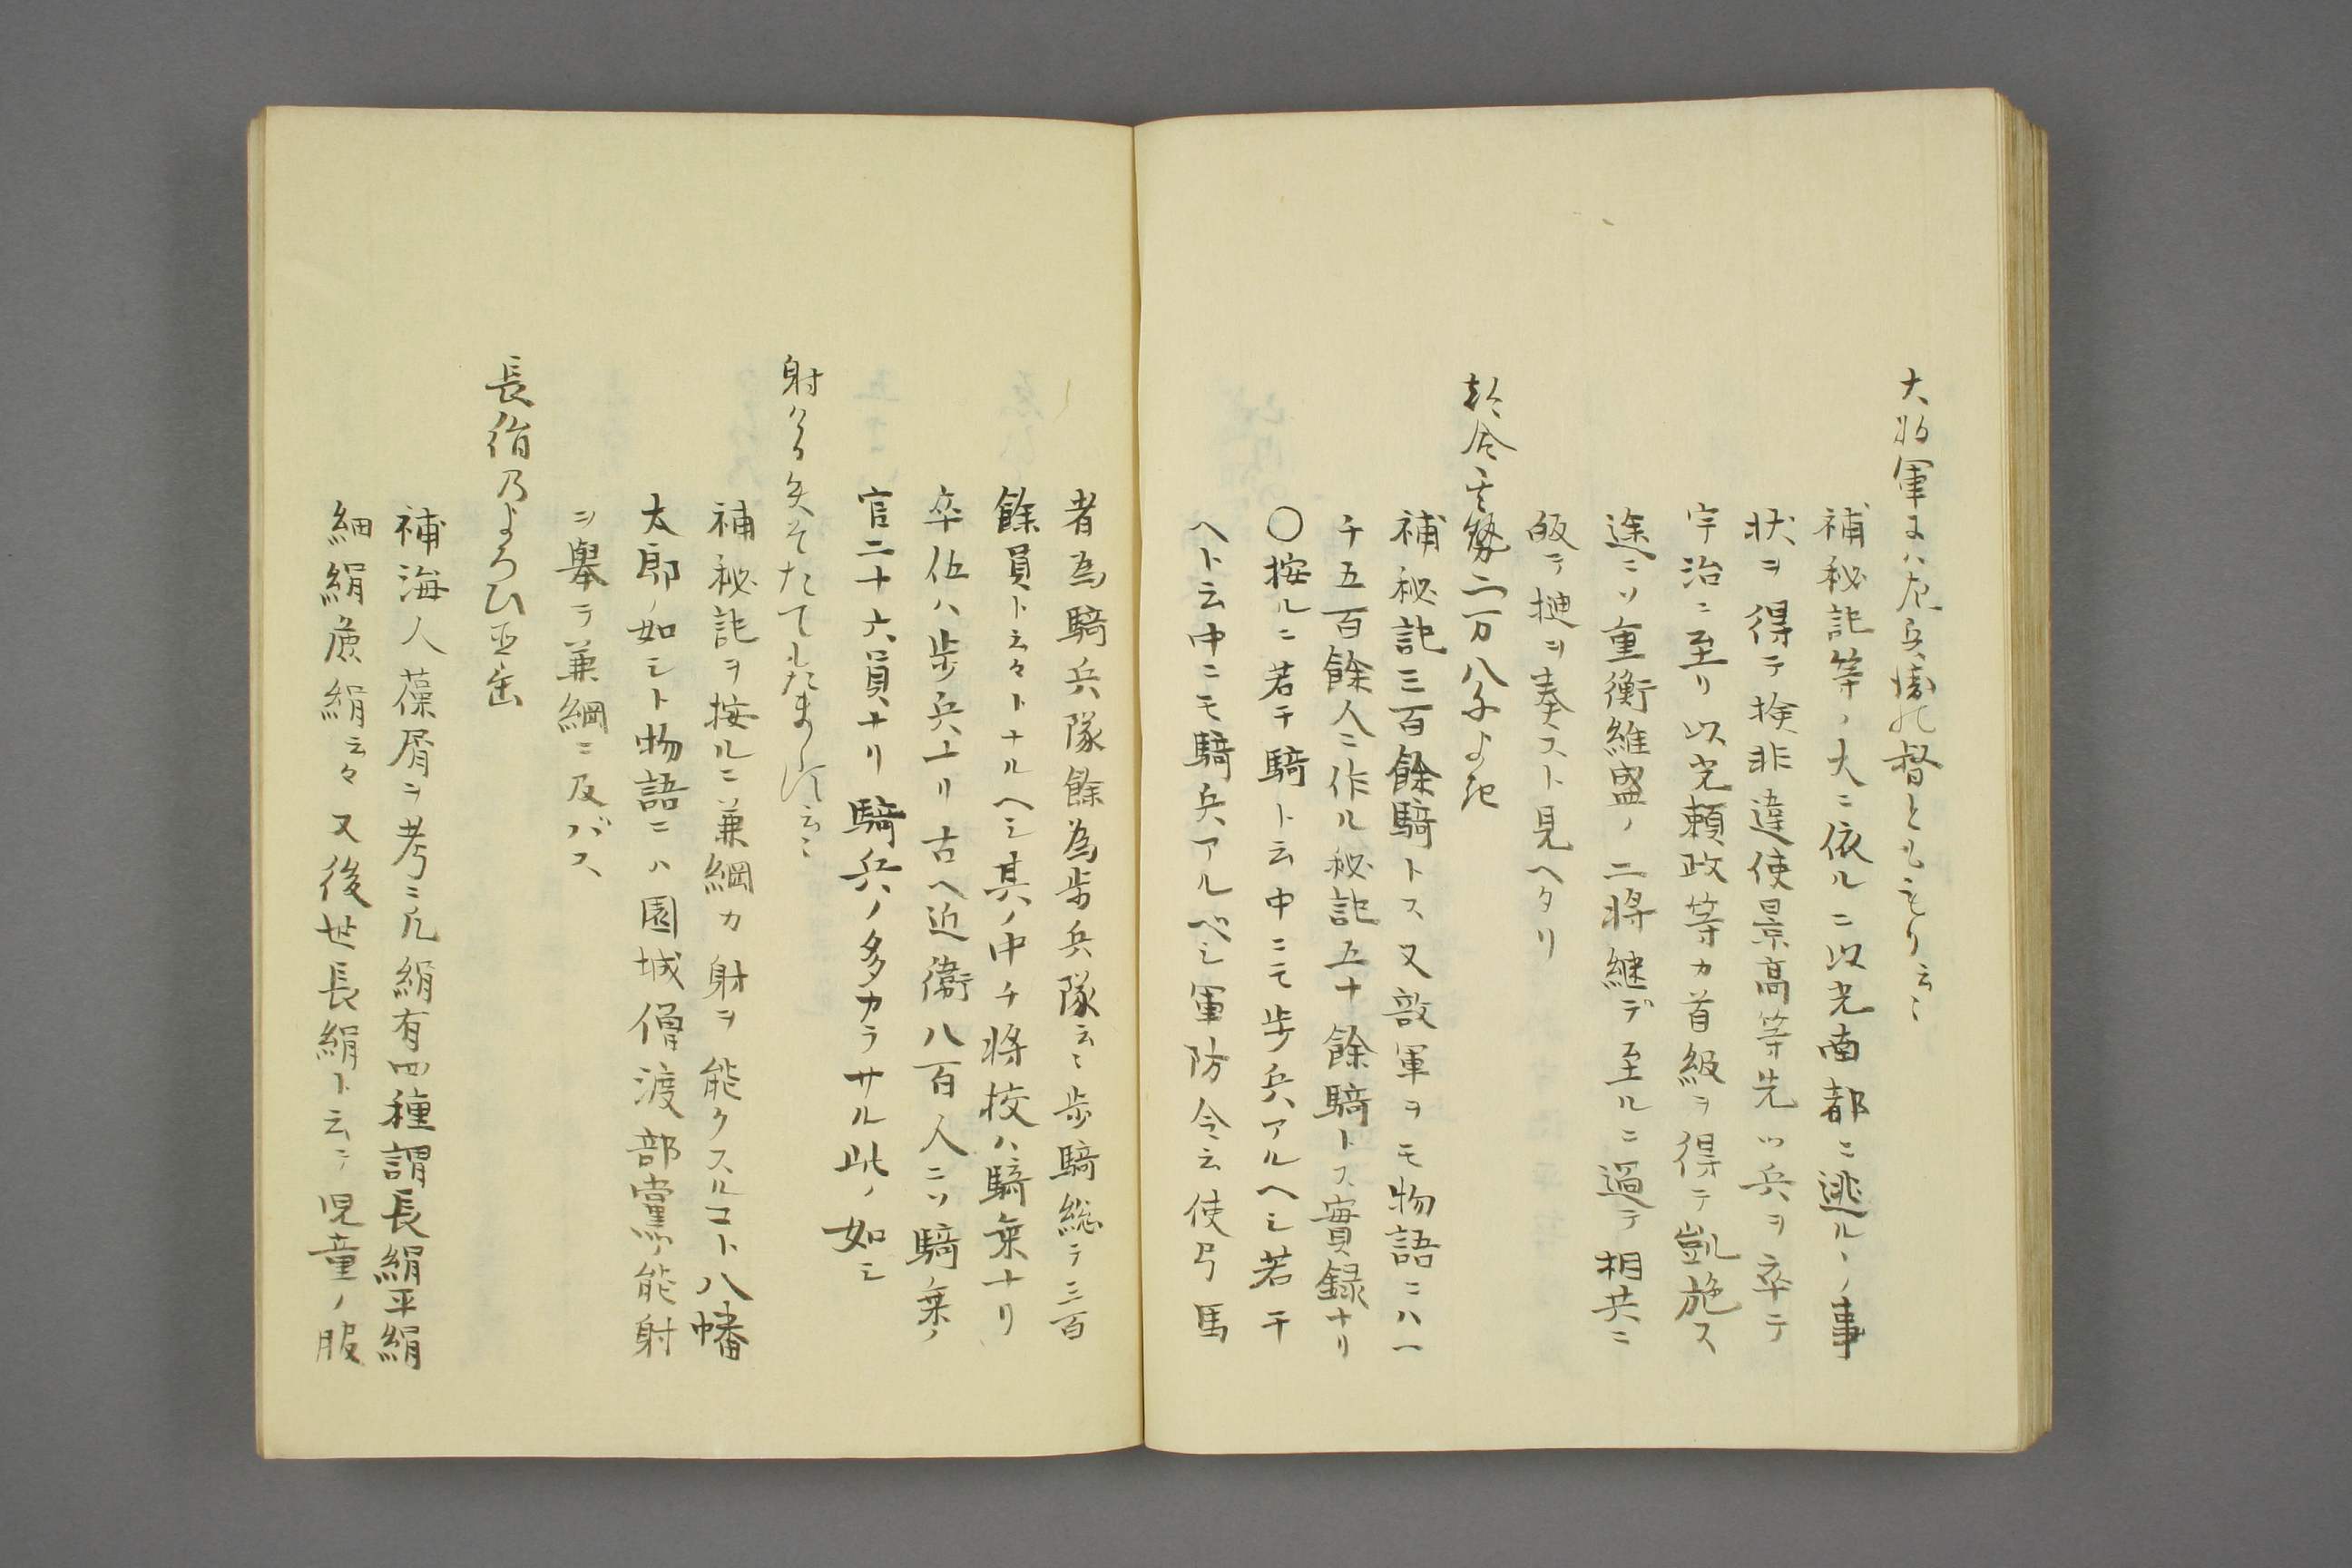 大将軍には左兵衛の督とももり云〻
補秘記等ノ大ニ依ルニ以光南都ニ逃ルヽノ事
状ヲ得テ検非違使景高等先ツ兵ヲ卒テ
宇治ニ至リ以光頼政等カ首級ヲ得テ凱旋ス
途ニソ重衡維盛ノ二将継デ至ルニ過テ相共ニ
皈テ捷ヲ奏スト見ヘタリ
都合其勢二万八千よ
補秘記三百餘騎トス又敵軍ヲモ物語ニハ一
千五百餘人ニ作ル秘記五十餘騎トス實録ナリ
〇按ルニ若干騎ト云中ニモ歩兵アルヘシ若干
ヘト云中ニモ騎兵アルベシ軍防令云使弓馬
者為騎兵隊餘為歩兵隊云〻歩騎総テ三百
餘員ト云々トナルヘシ其ノ中チ将校ハ騎乗ナリ
卒伍ハ歩兵ナリ古ヘ近衛八百人ニソ騎乗ノ
官二十六員ナリ騎兵ノ多カラサル此ノ如シ
射ける矢そたて
補秘記ヲ按ルニ兼綱カ射ヲ能クスルコト八幡
太郎ノ如シト物語ニハ園城僧渡部黨ノ能射
ヲ舉テ兼綱ニ及バス
長絹乃よろひ直垂
補海人藻屑ヲ考ニ凡絹有四種謂長絹平絹
細絹廣絹云々又後世長絹ト云テ児童ノ服